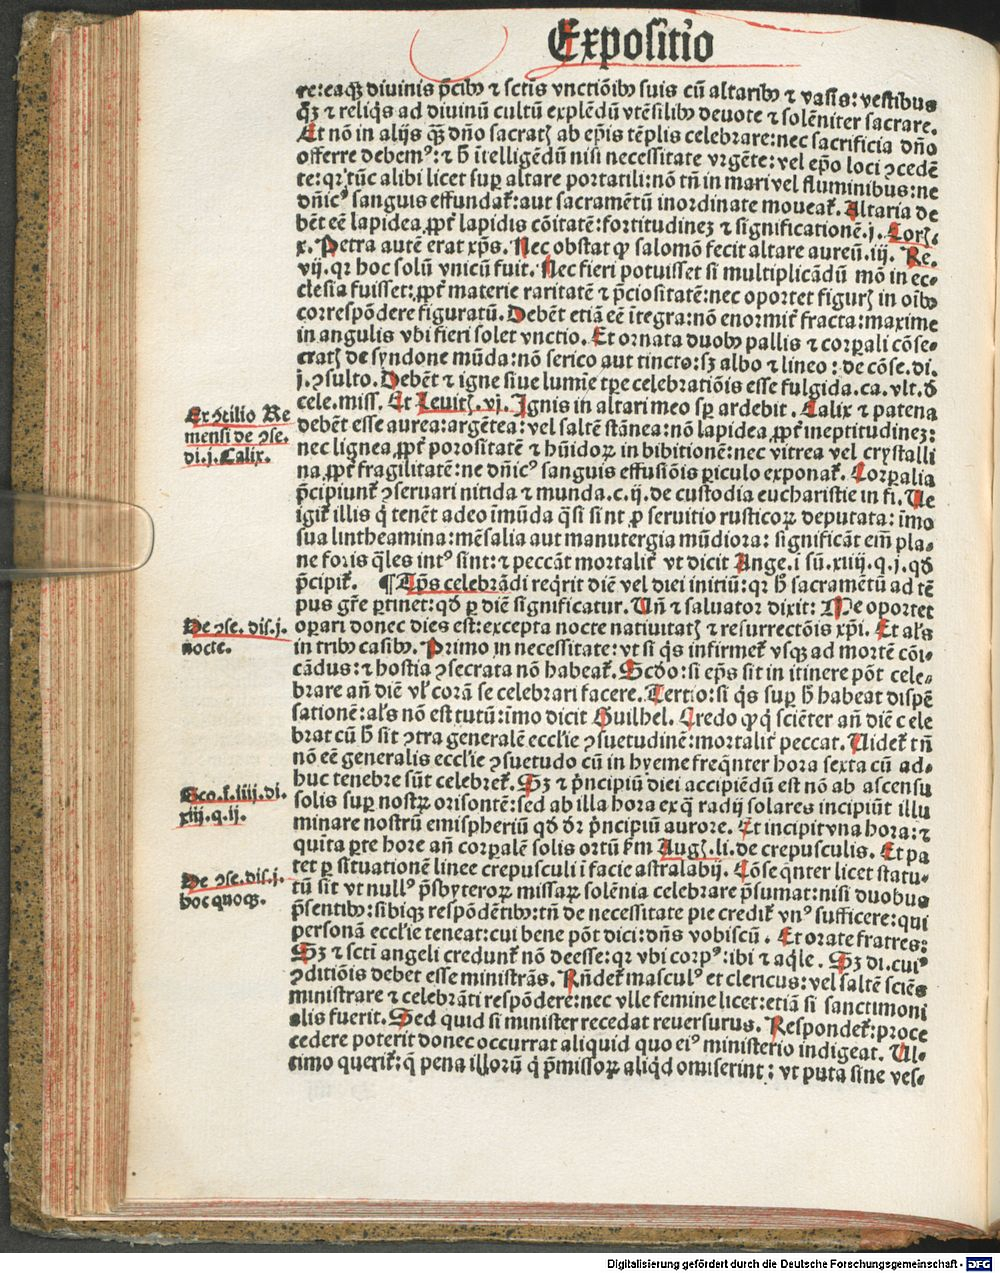 Expositio
re: eaqꝫ diuinis p̃cibꝰ ⁊ sctis vnctiõibꝰ suis cũ altaribꝰ ⁊ vasis: vestibus
qꝫ ⁊ reliq̃s ad diuinũ cultũ explẽdũ vtẽsilibꝰ deuote ⁊ solẽniter sacrare.
Et nõ in alijs qꝫ dño sacratꝭ ab ep̃is tẽplis celebrare: nec sacrificia dño
offerre debemꝰ: ⁊ h̃ ĩtelligẽdũ nisi necessitate vrgẽte: vel ep̃o loci ꝯcedẽ
te: qꝛ tũc alibi licet suꝑ altare portatili: nõ tñ in mari vel fluminibus: ne
dñicꝰ sanguis effundat̃: aut sacramẽtũ inordinate moueat̃. Altaria de
bẽt eẽ lapidea, ꝓpt̃ lapidis cõitatẽ: fortitudinez ⁊ significationẽ. j. Corꝭ.
x. Petra autẽ erat xp̃s. Nec obstat ꝙ salomõ fecit altare aureũ. iij. Re.
vij. qꝛ hoc solũ vnicũ fuit. Nec fieri potuisset si multiplicãdũ mõ in ec⸗
clesia fuisset: ꝓpt̃ materie raritatẽ ⁊ p̃ciositatẽ: nec oportet figurꝭ in oĩbꝰ
correspõdere figuratũ. Debẽt etiã eẽ ĩtegra: nõ enormit̃ fracta: maxime
in angulis vbi fieri solet vnctio. Et ornata duobꝰ pallis ⁊ corꝑali cõse⸗
cratꝭ de syndone mũda: nõ serico aut tincto: sꝫ albo ⁊ lineo: de cõse. di.
j. ꝯsulto. Debẽt ⁊ igne siue lumĩe tꝑe celebratiõis esse fulgida. ca. vlt. ð
cele. miss. Et Leuitꝭ. vj. Ignis in altari meo sꝑ ardebit. Calix ⁊ patena
debẽt esse aurea: argẽtea: vel saltẽ stãnea: nõ lapidea, ꝓpt̃ ineptitudinez:
nec lignea, ꝓpt̃ porositatẽ ⁊ hũidoꝝ in bibitionẽ: nec vitrea vel crystalli
na, ꝓpt̃ fragilitatẽ: ne dñicꝰ sanguis effusiõis ꝑiculo exponat̃. Corꝑalia
p̃cipiunt̃ ꝯseruari nitida ⁊ munda. c. ij. de custodia eucharistie in fi. Ue
igit̃ illis q̃ tenẽt adeo ĩmũda q̃si sint ꝓ seruitio rusticoꝝ deputata: ĩmo
sua lintheamina: mẽsalia aut manutergia mũdiora: significãt em̃ pla⸗
ne foris q̃les intꝰ sint: ⁊ peccãt mortalit̃ vt dicit Ange. i sũ. xiiij. q. j. qð
p̃cipit̃. ¶ Tp̃s celebrãdi req̃rit diẽ vel diei initiũ: qꝛ h̃ sacramẽtũ ad tẽ
pus gr̃e ꝑtinet: qð ꝑ diẽ significatur. Uñ ⁊ saluator dixit: Me oportet
oꝑari donec dies est: excepta nocte natiuitatꝭ ⁊ resurrectõis xp̃i. Et al̃s
in tribꝰ casibꝰ. Primo in necessitate: vt si q̃s infirmet̃ vsqꝫ ad mortẽ cõi⸗
cãdus: ⁊ hostia ꝯsecrata nõ habeat̃. Scðo: si ep̃s sit in itinere põt cele⸗
brare añ diẽ vl̃ corã se celebrari facere. Tertio: si q̃s suꝑ h̃ habeat dispẽ
sationẽ: al̃s nõ est tutũ: ĩmo dicit Guilhel. Credo ꝙ q̃ sciẽter añ diẽ cele
brat cũ h̃ sit ꝯtra generalẽ eccl̃ie ꝯsuetudinẽ: mortalit̃ peccat. Uidet̃ tñ
nõ eẽ generalis eccl̃ie ꝯsuetudo cũ in hyeme freq̃nter hora sexta cũ ad⸗
huc tenebre sũt celebret̃. Sꝫ ⁊ p̃ncipiũ diei accipiẽdũ est nõ ab ascensu
solis suꝑ nostꝝ orisontẽ: sed ab illa hora ex q̃ radij solares incipiũt illu
minare nostrũ emispheriũ qð dꝛ p̃ncipiũ aurore. Et incipit vna hora: ⁊
quĩta ꝑte hore añ corꝑalẽ solis ortũ fm̃ Augꝭ. li. de crepusculis. Et pa
tet ꝑ situationẽ linee crepusculi ĩ facie astralabij. Cõseq̃nter licet statu⸗
tũ sit vt nullꝰ p̃sbyteroꝝ missaꝝ solẽnia celebrare p̃sumat: nisi duobus
p̃sentibꝰ: sibiqꝫ respõdẽtibꝰ: tñ de necessitate pie credit̃ vnꝰ sufficere: qui
personã eccl̃ie teneat: cui bene põt dici: dñs vobiscũ. Et orate fratres:
Sꝫ ⁊ scti angeli credunt̃ nõ deesse: qꝛ vbi corpꝰ: ibi ⁊ aq̃le. Sꝫ di. cuiꝰ
ꝯditiõis debet esse ministrãs. Rñdet̃ masculꝰ et clericus: vel saltẽ sciẽs
ministrare ⁊ celebrãti respõdere: nec vlle femine licet: etiã si sanctimoni
alis fuerit. Sed quid si minister recedat reuersurus. Respondet̃: proce
cedere poterit donec occurrat aliquid quo eiꝰ ministerio indigeat. Ul⸗
timo querit̃: q̃ pena illorũ q̃ p̃missoꝝ aliq̃d omiserint: vt puta sine ves⸗
Ex ꝯcilio Re
mensi de ꝯse.
di. j. Calix.
De ꝯse. dis. j.
nocte.
Sco. ẜ. iiij. di.
xiij. q. ij.
De ꝯse. dis. j.
hoc quoqꝫ.
Digitalisierung gefördert durch die Deutsche Forschungsgemeinschaft - DFG